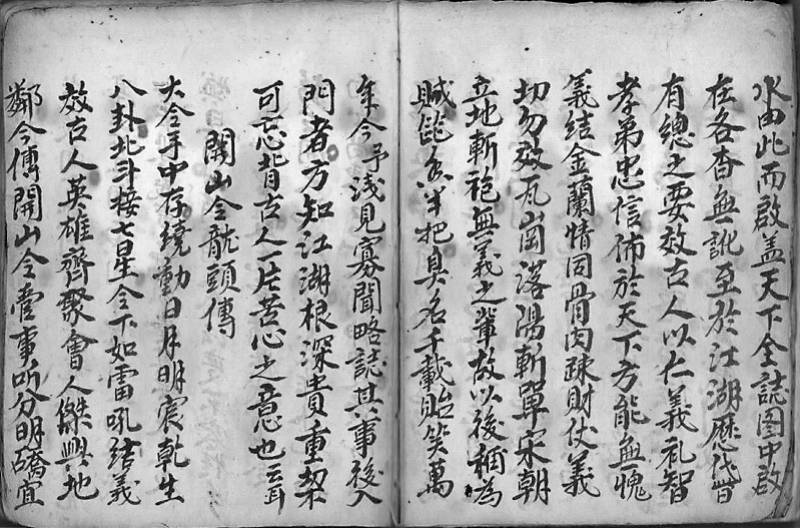 水由此而啟盖天下全誌图中啟
在各杳無訛至於江湖歷代皆
有總之要效古人以仁義礼智
孝弟忠信佈於天下方能無愧
義結金蘭情同骨肉疎財仗義
切勿效瓦崗落陽斬單宋朝
立地斬袍無義之輩故以後稱為
賊能香半把臭名千載貽笑萬
年今予浅見寡聞略誌其事後入
門者方知江湖根深貴重契
可忘背古人一片苦心之意也云耳
開山令龍頭傳
大令手中存繞動日月明宸乾生
八卦北斗接七星令下如雷吼结義
效古人英雄齊聚會人傑興地
鄰今傳開山令壹事听分明礄宜